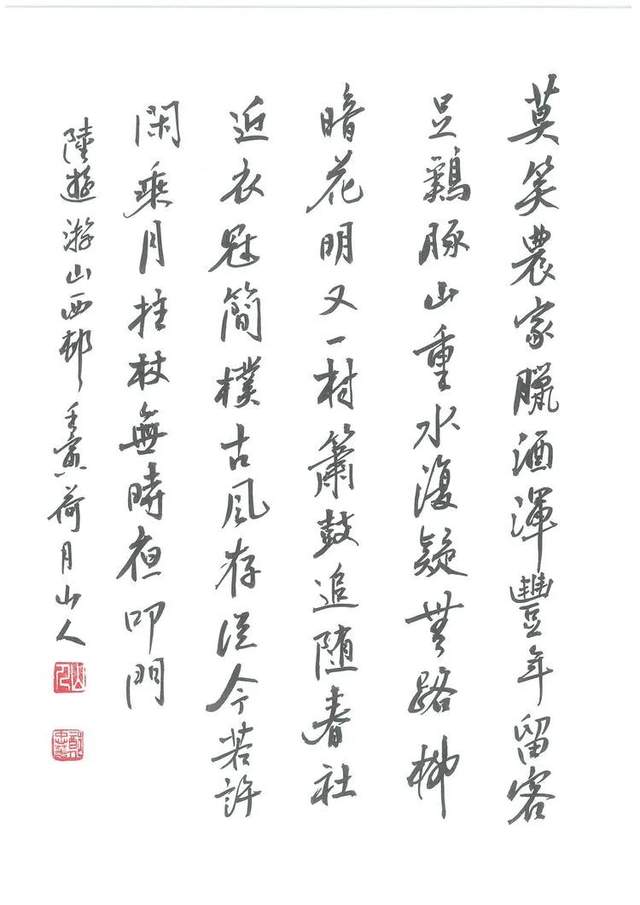 莫笑農家臘酒渾豐年留客
足鷄豚山重水復疑無路柳
暗花明又一村簫鼓追随春社
近衣冠簡樸古風存從今若許
閑乘月拄杖無時夜叩門
陸遊游山西邨壬寅荷月山人